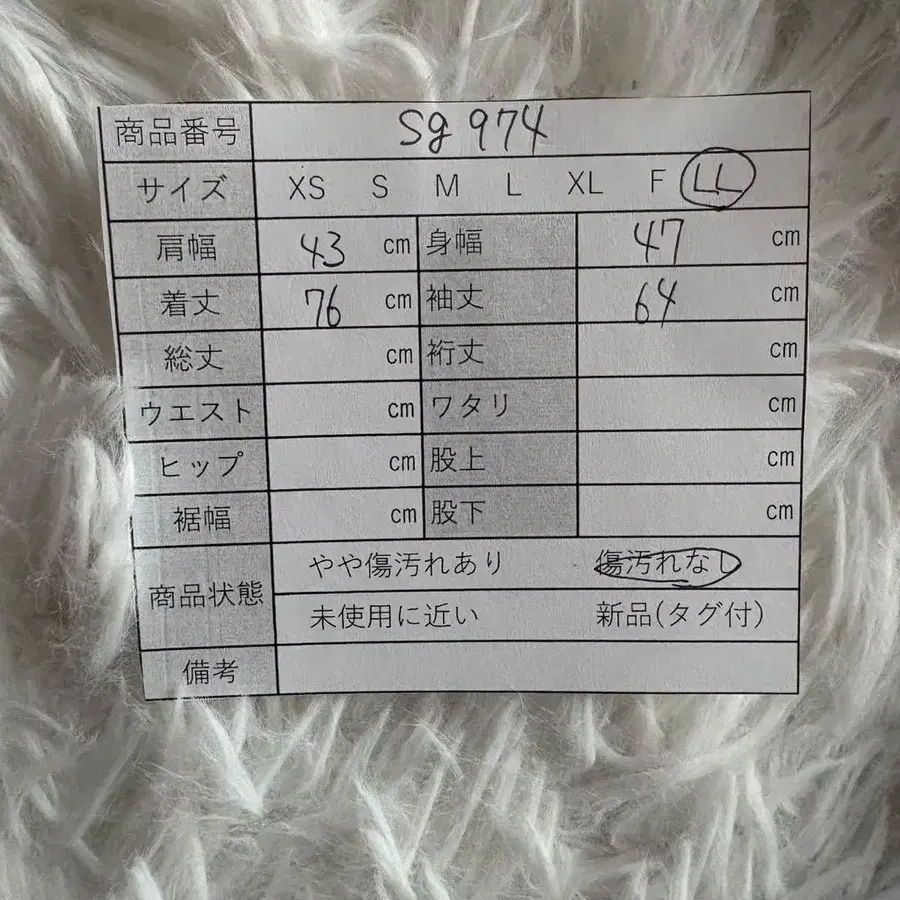 商品番号 Sg 974
サイズ XS S M L XL F LL
肩幅 43 cm 身幅 47 cm
着丈 76 cm 袖丈 64 cm
総丈 cm 裄丈 cm
ウエスト cm ワタリ cm
ヒップ cm 股上 cm
裾幅 cm 股下 cm
商品状態 やや傷汚れあり 傷汚れなし
未使用に近い 新品(タグ付)
備考